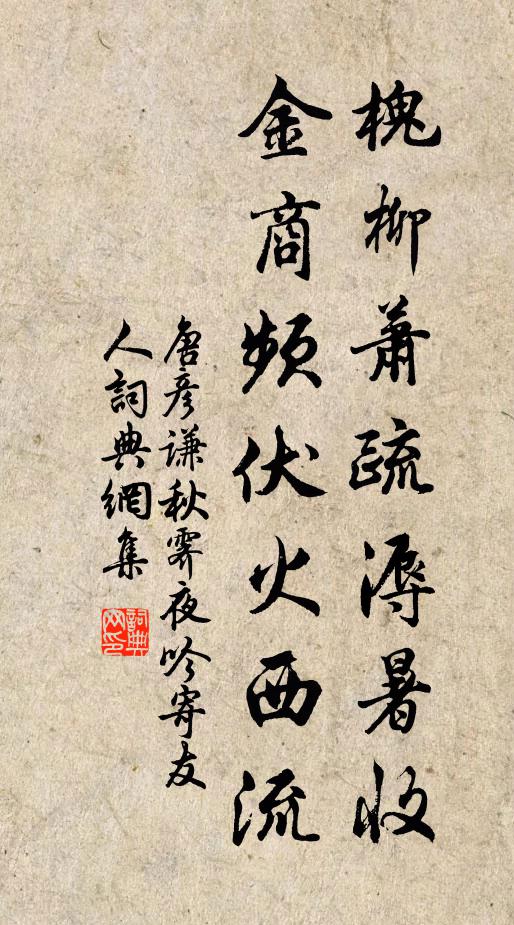 槐柳蕭疏溽暑收
金商頻伏火西流
唐彦謙秋霽夜吟寄友
人詞典網集
詞典
网印